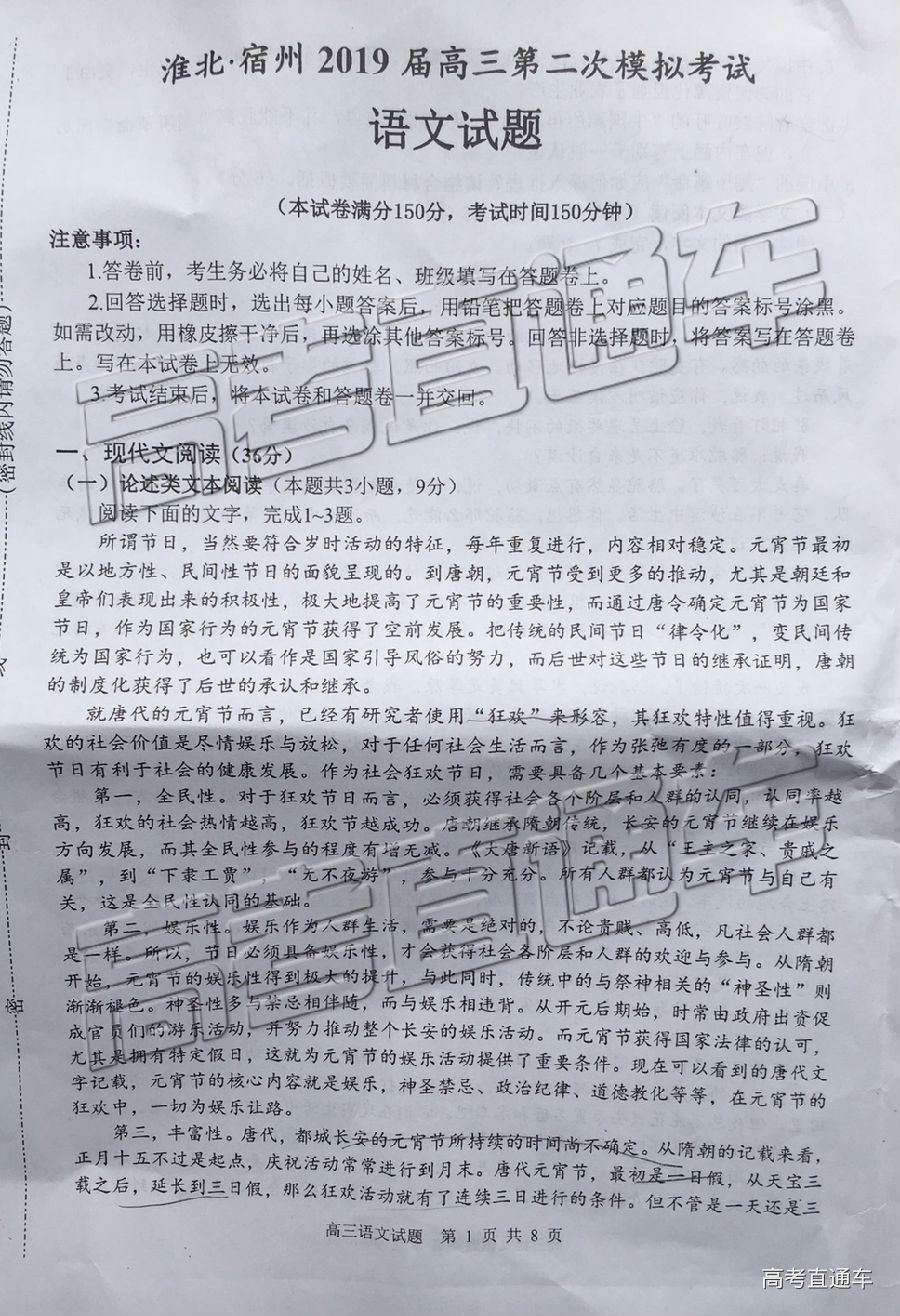 淮北·宿州 2019 届高三第二次模拟考试
语文试题
(本试卷满分150分，考试时间150分钟)
注意事项：
1.答卷前，考生务必将自己的姓名、班级填写在答题卷上。
2.回答选择题时，选出每小题答案后，用铅笔把答题卷上对应题目的答案标号涂黑。
如需改动，用橡皮擦干净后，再选涂其他答案标号。回答非选择题时，将答案写在答题卷
上。写在本试卷上无效。
3.考试结束后，将本试卷和答题卷一并交回。
一、现代文阅读（36分）
（一）论述类文本阅读（本题共3小题，9分）
阅读下面的文字，完成1~3题。
所谓节日，当然要符合岁时活动的特征，每年重复进行，内容相对稳定。元宵节最初
是以地方性、民间性节日的面貌呈现的。到唐朝，元宵节受到更多的推动，尤其是朝廷和
皇帝们表现出来的积极性，极大地提高了元宵节的重要性，而通过唐令确定元宵节为国家
节日，作为国家行为的元宵节获得了空前发展。把传统的民间节日“律令化”，变民间传
统为国家行为，也可以看作是国家引导风俗的努力，而后世对这些节日的继承证明，唐朝
的制度化获得了后世的承认和继承。
就唐代的元宵节而言，已经有研究者使用“狂欢”来形容，其狂欢特性值得重视。狂
欢的社会价值是尽情娱乐与放松，对于任何社会生活而言，作为张弛有度的一部分，狂欢
节日有利于社会的健康发展。作为社会狂欢节日，需要具备几个基本要素：
第一，全民性。对于狂欢节日而言，必须获得社会各个阶层和人群的认同，认同率越
高，狂欢的社会热情越高，狂欢节越成功。唐朝继承隋朝传统，长安的元宵节继续在娱乐
方向发展，而其全民性参与的程度有增无减。《大唐新语》记载，从“王主之家、贵戚之
属”，到“下隶工贾”，“无不夜游”，参与十分充分。所有人群都认为元宵节与自己有
关，这是全民性认同的基础。
第二，娱乐性。娱乐作为人群生活，需要是绝对的，不论贵贱、高低，凡社会人群都
是一样。所以，节日必须具备娱乐性，才会获得社会各阶层和人群的欢迎与参与。从隋朝
开始，元宵节的娱乐性得到极大的提升，与此同时，传统中的与祭神相关的“神圣性”则
渐渐褪色。神圣性多与禁忌相伴随，而与娱乐相违背。从开元后期始，时常由政府出资促
成官员们的游乐活动，并努力推动整个长安的娱乐活动。而元宵节获得国家法律的认可，
尤其是拥有特定假日，这就为元宵节的娱乐活动提供了重要条件。现在可以看到的唐代文
字记载，元宵节的核心内容就是娱乐，神圣禁忌、政治纪律、道德教化等等，在元宵节的
狂欢中，一切为娱乐让路。
第三，丰富性。唐代，都城长安的元宵节所持续的时间尚不确定。从隋朝的记载来看，
正月十五不过是起点，庆祝活动常常进行到月末。唐代元宵节，最初是一日假，从天宝三
载之后，延长到三日假，那么狂欢活动就有了连续三日进行的条件。但不管是一天还是三
高三语文试题 第 1 页 共 8 页
(密封线内请勿答题)
封
密
高考直通车
高考直通车
高考直通车